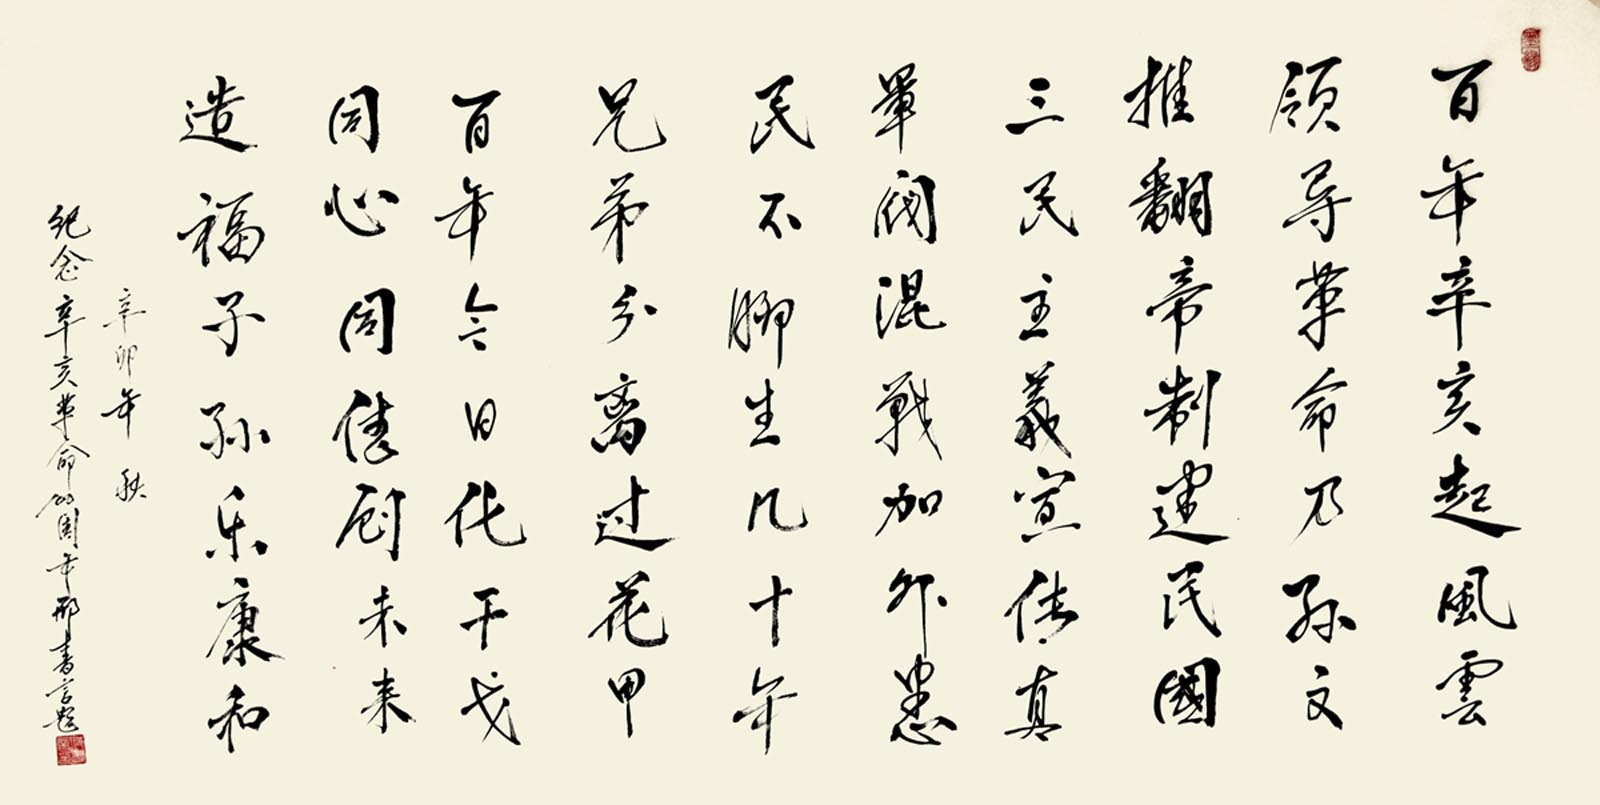 百年辛亥起風雲
领导革命乃孙文
推翻帝制建民國
三民主義宣传真
軍阀混戰加外患
民不聊生几十年
兄弟分离过花甲
百年今日化干戈
同心同未来
造福子孙乐康和
辛卯年秋
纪念辛亥革命100周年邢書言题